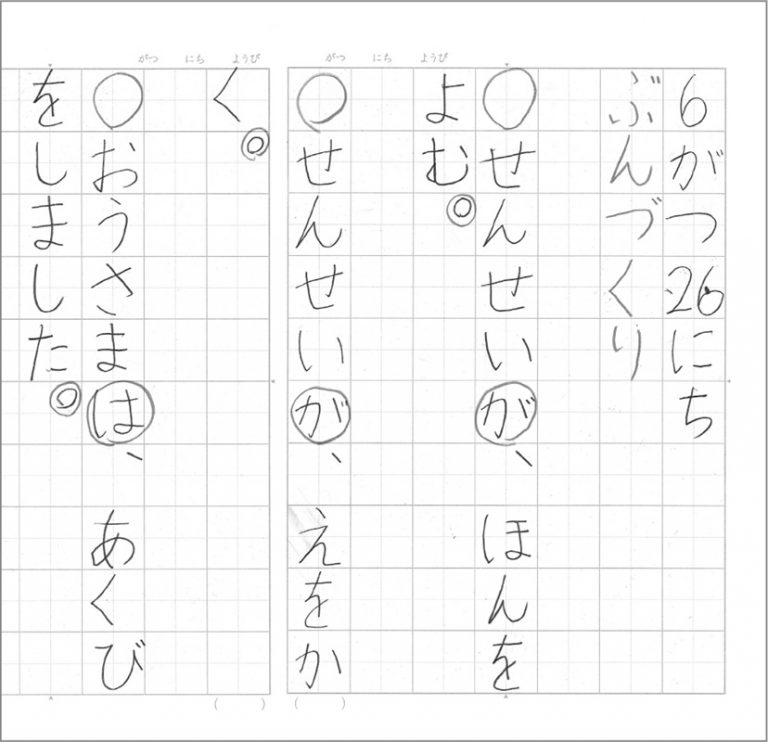 6がつ26にち
ぶんづくり
○せんせいが、ほんを
よむ。
○せんせいが、えをか
く。
○おうさまは、あくび
をしました。
がつ にち ようび
がつ にち ようび
( )
( )